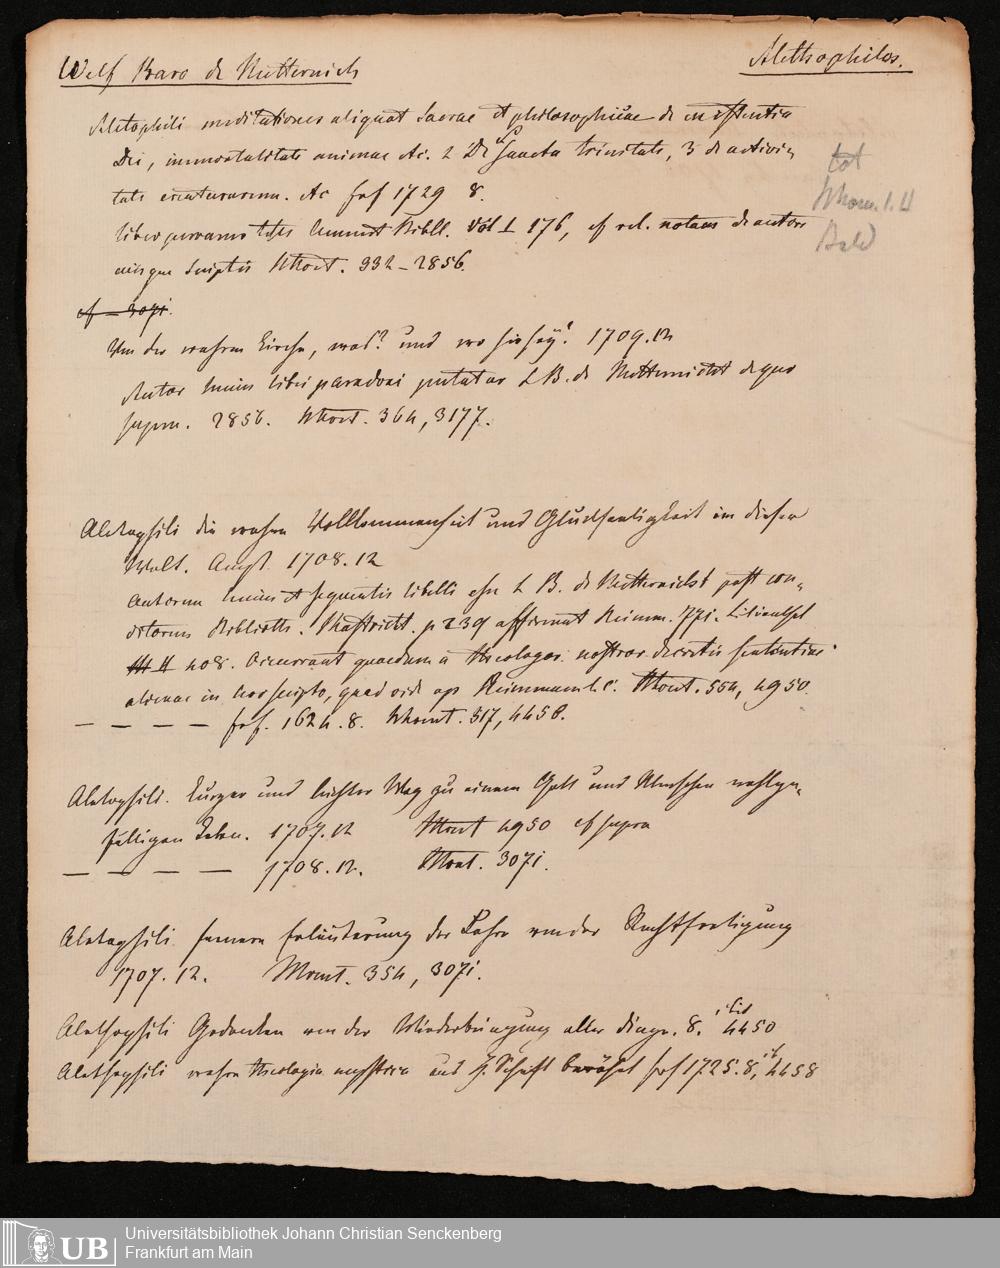 Wolf Baro de Metternich
Alethophilos.
Aletophili meditationes aliquot sacrae et philosophicae de existentia
Dei, immortalitate animae &c. 2 De Sancta trinitate, 3 de activi-
tate creaturarum. &c frf 1729 8.
liber parvamo Bibl. Vol I 176, cf rel. notam de autore
eiusque scriptis 332 – 2856.
cf – 3071.
Von der wahren Kirche, was? und wo sie sey? 1709. 12
Autor huius libri paradoxi putatur L B. de Metternicht de quo
supra. 2856. 364, 3177.
tot
Bald
Aletophili die wahre Vollkommenheit und Glückseeligkeit in dieser
Welt. Amst. 1708. 12
autorem huius et sequentis libelli esse L B. de Metternicht post con-
ditorem Biblioth. p 239 affirmat Reimm. 771. Lilienthal
408. Occurrunt quaedam a theologor. nostror. decretis sententiae
alienae in hoc scripto, quod vide ap Reimmann l. c. 554, 4950.
— — — — frf. 1624. 8. 317, 4458.
Aletophili. kurzer und leichter Weg zu einem Gott und Menschen wohlge-
fälligen Leben. 1707. 12 4950 cf supra
— — — — 1708. 12. 3071.
Aletophili. fernere Erläuterung der Lehre von der Rechtfertigung
1707. 12. 354, 3071.
Alethophili Gedanken von der Wiederbringung aller Dinge. 8. ibid 4450
Alethophili wahre theologia mystica aus H. Schrift bewährt frf 1725. 8, ib 4458
UB
Universitätsbibliothek Johann Christian Senckenberg
Frankfurt am Main